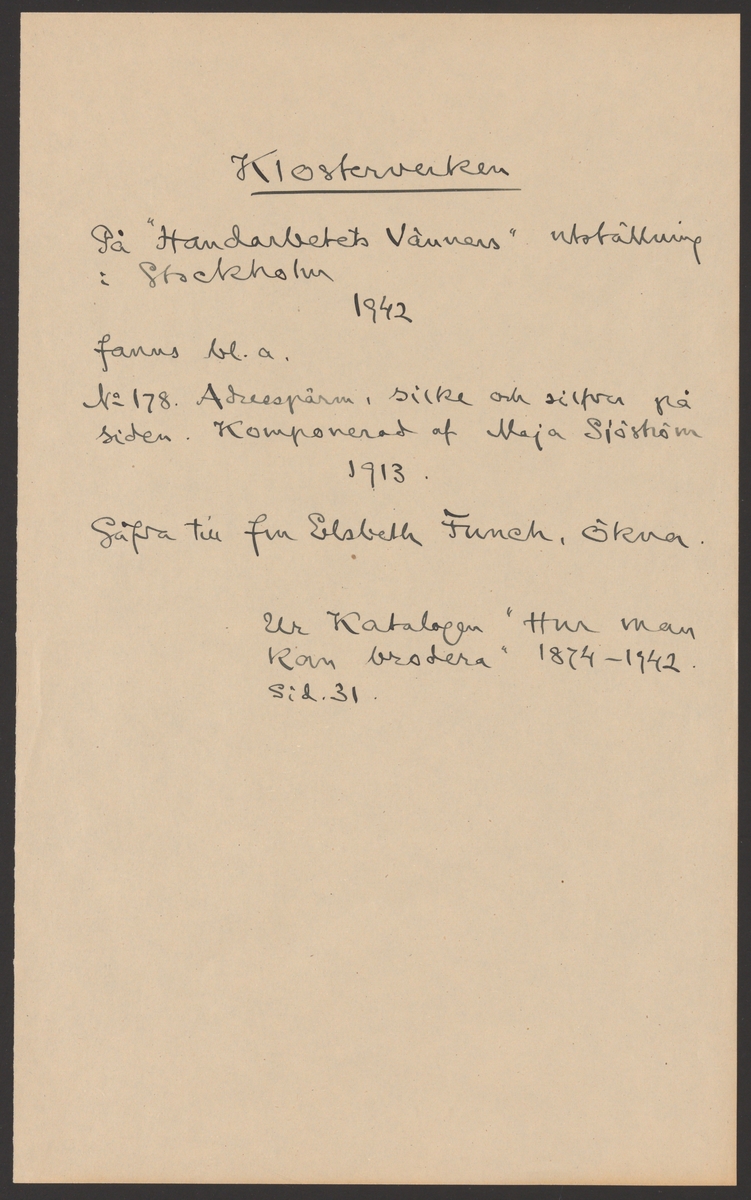 Klosterverken
På "Handarbetets Vänners" utställning
i Stockholm
1942
fanns bl. a.
No 178. Adresspärm, silke och silfver på
siden. Komponerad af Maja Sjöström
1913.
Gåfva till fru Elsbeth Funch, Ökna.
Ur Katalogen "Hur man
kan brodera" 1874-1942.
sid. 31.